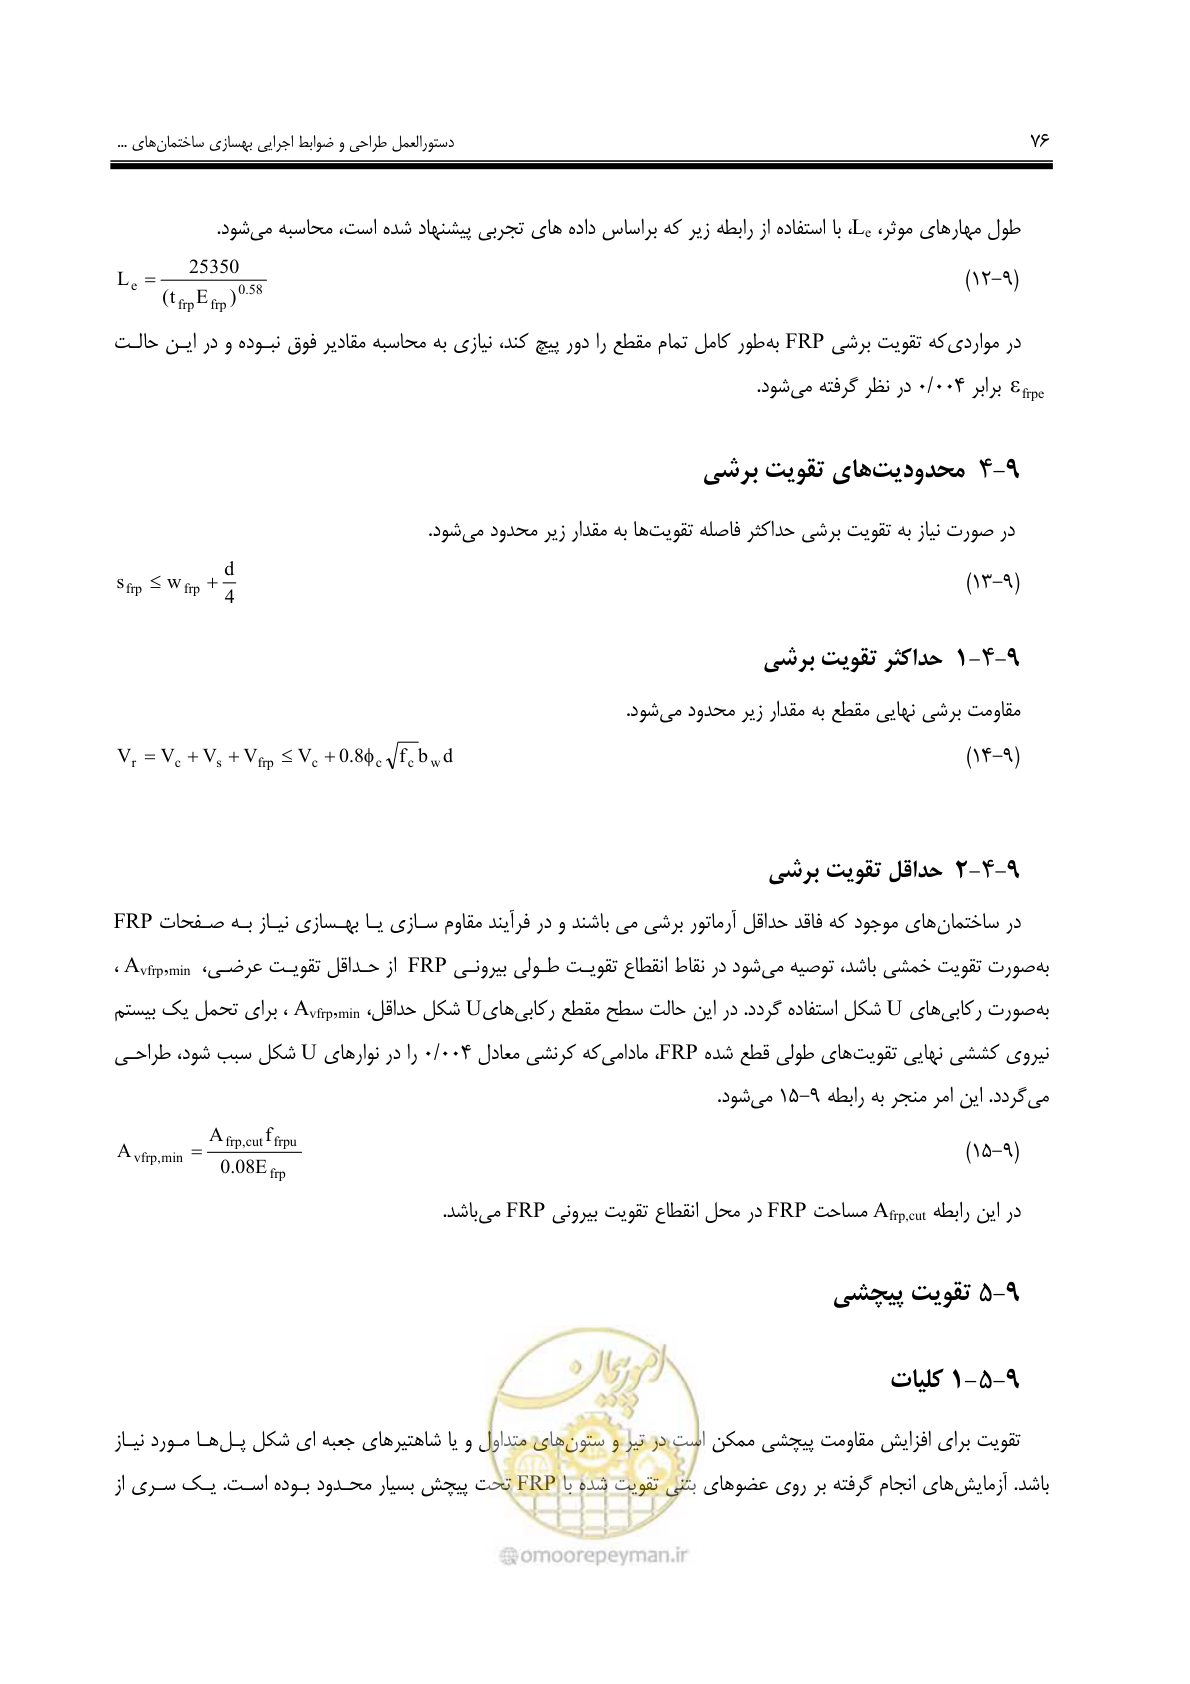 ۷۶ دستورالعمل طراحی و ضوابط اجرایی بهسازی ساختمان‌های ...
طول مهارهای موثر، Le، با استفاده از رابطه زیر که براساس داده های تجربی پیشنهاد شده است، محاسبه می‌شود.
(۹-۱۲) L_e = 25350 / (t_frp E_frp)^0.58
در مواردی‌که تقویت برشی FRP به‌طور کامل تمام مقطع را دور پیچ کند، نیازی به محاسبه مقادیر فوق نبوده و در این حالت
ε_frpe برابر ۰/۰۰۴ در نظر گرفته می‌شود.
۹-۴ محدودیت‌های تقویت برشی
در صورت نیاز به تقویت برشی حداکثر فاصله تقویت‌ها به مقدار زیر محدود می‌شود.
(۹-۱۳) s_frp ≤ w_frp + d/4
۹-۴-۱ حداکثر تقویت برشی
مقاومت برشی نهایی مقطع به مقدار زیر محدود می‌شود.
(۹-۱۴) V_r = V_c + V_s + V_frp ≤ V_c + 0.8ϕ_c √f_c b_w d
۹-۴-۲ حداقل تقویت برشی
در ساختمان‌های موجود که فاقد حداقل آرماتور برشی می باشند و در فرآیند مقاوم سازی یا بهسازی نیاز به صفحات FRP
به‌صورت تقویت خمشی باشد، توصیه می‌شود در نقاط انقطاع تقویت طولی بیرونی FRP از حداقل تقویت عرضی، A_vfrp,min ،
به‌صورت رکابی‌های U شکل استفاده گردد. در این حالت سطح مقطع رکابی‌های U شکل حداقل، A_vfrp,min ، برای تحمل یک بیستم
نیروی کششی نهایی تقویت‌های طولی قطع شده FRP، مادامی‌که کرنشی معادل ۰/۰۰۴ را در نوارهای U شکل سبب شود، طراحی
می‌گردد. این امر منجر به رابطه ۹-۱۵ می‌شود.
(۹-۱۵) A_vfrp,min = A_frp,cut f_frpu / 0.08E_frp
در این رابطه A_frp,cut مساحت FRP در محل انقطاع تقویت بیرونی FRP می‌باشد.
۹-۵ تقویت پیچشی
۹-۵-۱ کلیات
تقویت برای افزایش مقاومت پیچشی ممکن است در تیر و ستون‌های متداول و یا شاهتیرهای جعبه ای شکل پل‌ها مورد نیاز
باشد. آزمایش‌های انجام گرفته بر روی عضوهای بتنی تقویت شده با FRP تحت پیچش بسیار محدود بوده است. یک سری از
امور پیمان
@omoorepeyman.ir